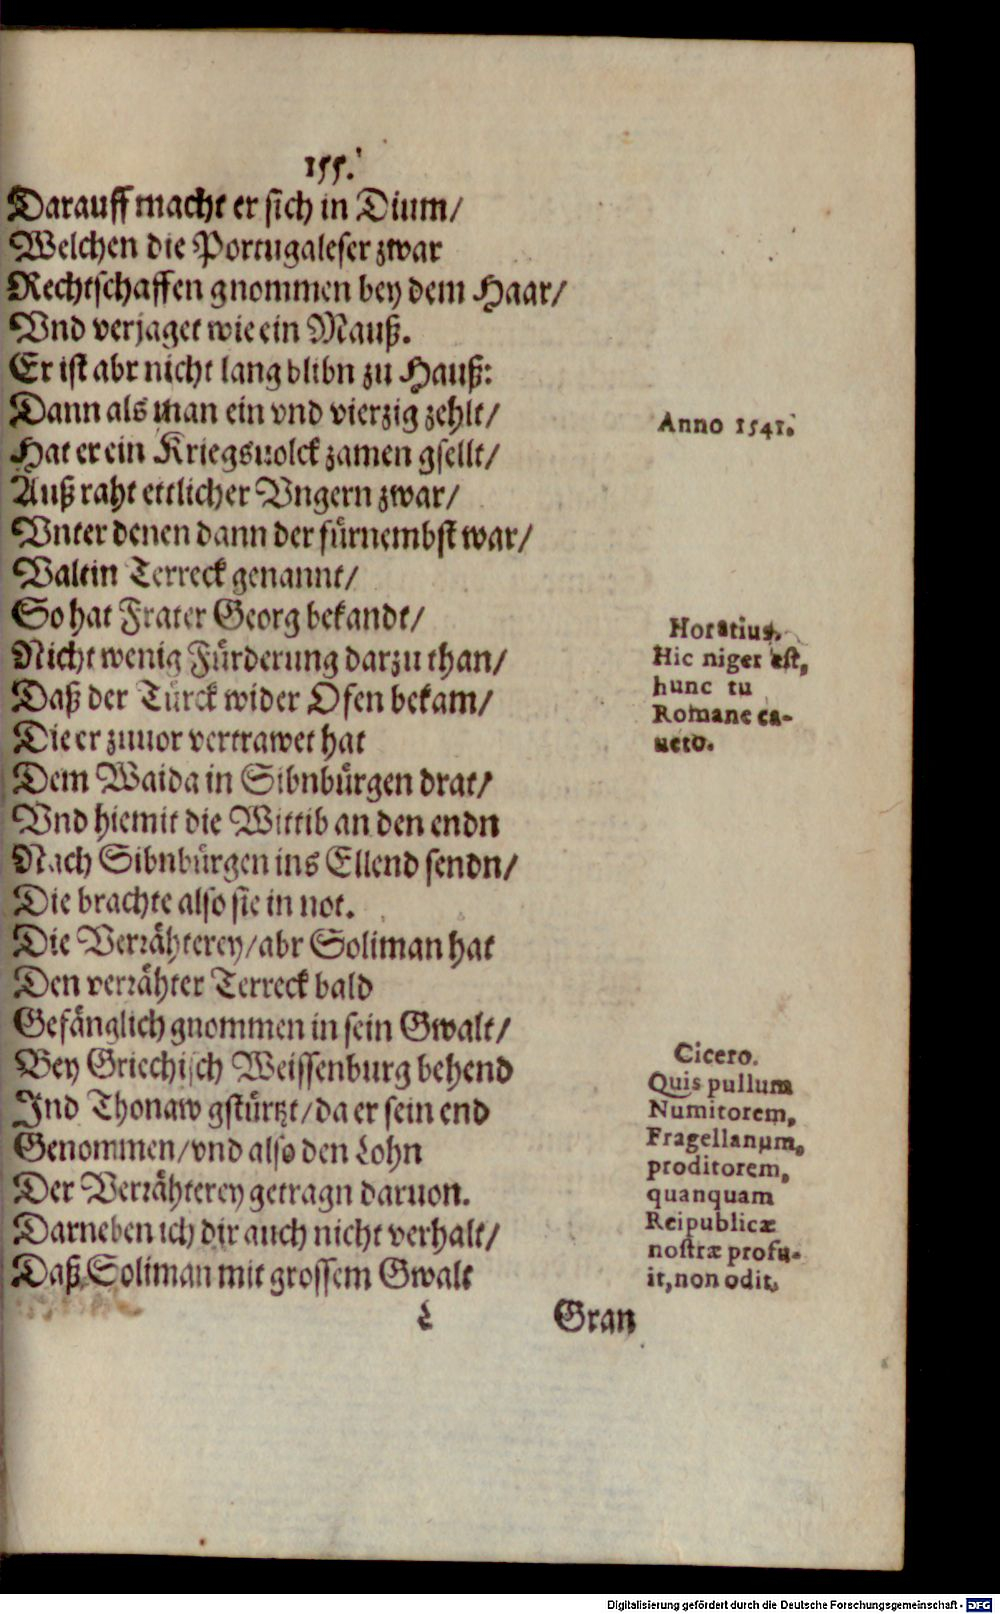 155.
Darauff macht er sich in Dium/
Welchen die Portugaleser zwar
Rechtschaffen gnommen bey dem Haar/
Vnd verjaget wie ein Mauß.
Er ist abr nicht lang blibn zu Hauß:
Dann als man ein vnd vierzig zehlt/
Hat er ein Kriegsuolck zamen gsellt/
Auß raht ettlicher Vngern zwar/
Vnter denen dann der fürnembst war/
Valtin Terreck genannt/
So hat Frater Georg bekandt/
Nicht wenig Fürderung darzu than/
Daß der Türck wider Ofen bekam/
Die er zuuor vertrawet hat
Dem Waida in Sibnbürgen drat/
Vnd hiemit die Wittib an den endn
Nach Sibnbürgen ins Ellend sendn/
Die brachte also sie in not.
Die Verrähterey/abr Soliman hat
Den verrähter Terreck bald
Gefänglich gnommen in sein Gwalt/
Bey Griechisch Weissenburg behend
Jnd Thonaw gstürtzt/da er sein end
Genommen/vnd also den Lohn
Der Verrähterey getragn daruon.
Darneben ich dir auch nicht verhalt/
Daß Soliman mit grossem Gwalt
L Gran
Anno 1541.
Horatius.
Hic niger est,
hunc tu
Romane ca-
ueto.
Cicero.
Quis pullum
Numitorem,
Fragellanum,
proditorem,
quanquam
Reipublicæ
nostræ profu-
it, non odit.
Digitalisierung gefördert durch die Deutsche Forschungsgemeinschaft - DFG